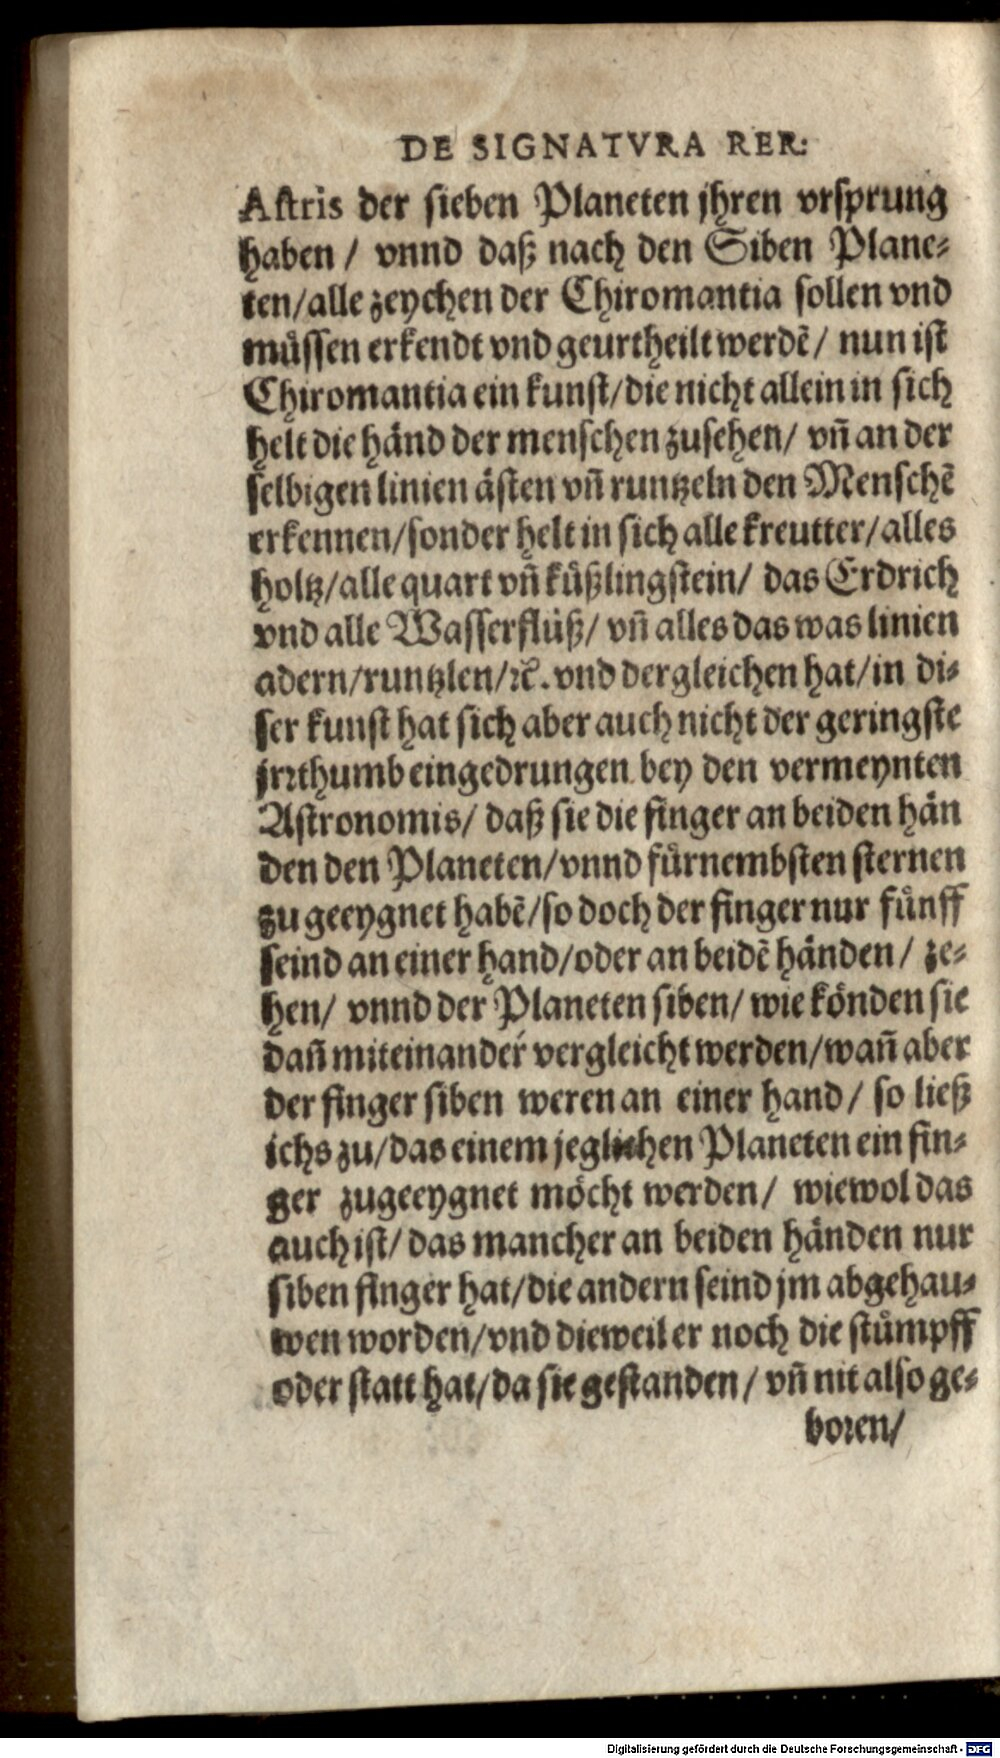 DE SIGNATVRA RER:
Astris der sieben Planeten jhren vrsprung
haben / vnnd daß nach den Siben Plane⸗
ten/alle zeychen der Chiromantia sollen vnd
muͤssen erkendt vnd geurtheilt werdē/ nun ist
Chiromantia ein kunst/die nicht allein in sich
helt die haͤnd der menschen zusehen/ vñ an der
selbigen linien aͤsten vñ runtzeln den Menschē
erkennen/sonder helt in sich alle kreutter/alles
holtz/alle quart vñ kuͤßlingstein/ das Erdrich
vnd alle Wasserfluͤß/ vñ alles das was linien
adern/runtzlen/ꝛc̄. vnd dergleichen hat/in di⸗
ser kunst hat sich aber auch nicht der geringste
jrꝛthumb eingedrungen bey den vermeynten
Astronomis/ daß sie die finger an beiden haͤn
den den Planeten/vnnd fuͤrnembsten sternen
zu geeygnet habē/so doch der finger nur fuͤnff
seind an einer hand/oder an beidē haͤnden/ ze⸗
hen/ vnnd der Planeten siben/ wie koͤnden sie
dañ miteinander vergleicht werden/wañ aber
der finger siben weren an einer hand/ so ließ
ichs zu/das einem jeglichen Planeten ein fin⸗
ger zugeeygnet moͤcht werden/ wiewol das
auch ist/ das mancher an beiden haͤnden nur
siben finger hat/die andern seind jm abgehau⸗
wen worden/vnd dieweil er noch die stuͤmpff
oder statt hat/da sie gestanden/ vñ nit also ge⸗
boꝛen/
Digitalisierung gefördert durch die Deutsche Forschungsgemeinschaft - DFG